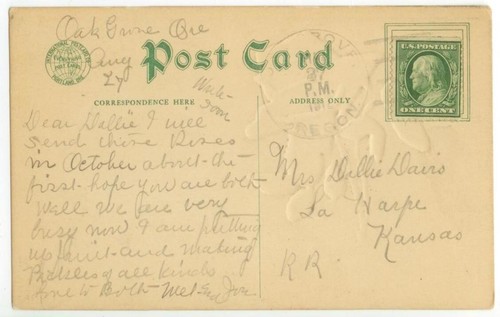 Oak Grove Ore
Aug
27
Post Card
CORRESPONDENCE HERE
ADDRESS ONLY
Write
soon
Dear Dallie I will
send those Roses
in October about the
first-hope you are both
well we are very
busy now I am putting
up fruit and making
Pickles of all kinds
love to Both
Mrs Dallie Davis
La Harpe
Kansas
R.R.
GROVE
27
P.M.
OREGON
U.S. POSTAGE
ONE CENT